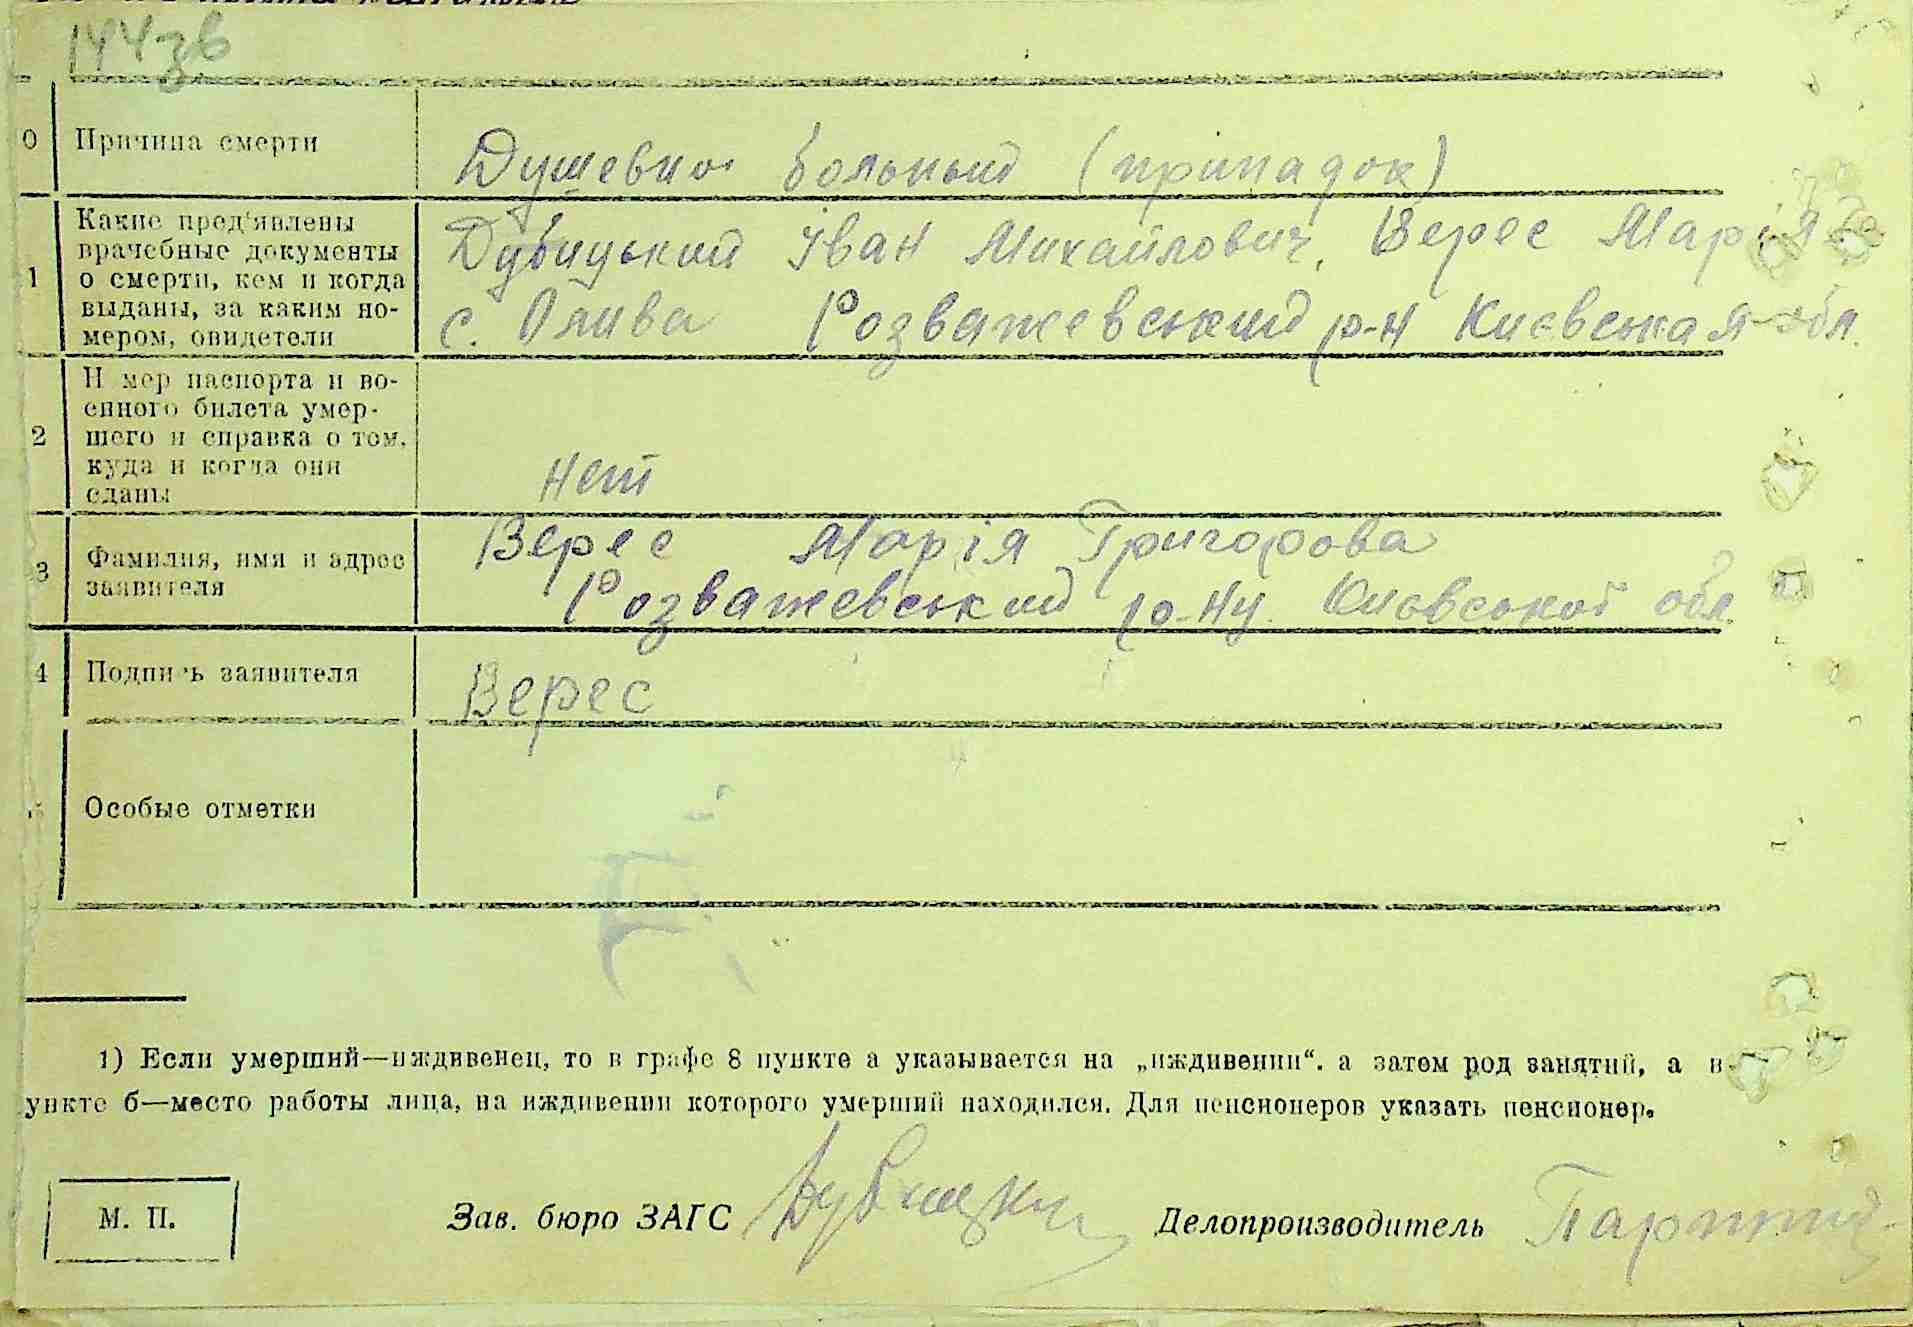 144зв
0 Причина смерти Душевно больный (припадок)
1 Какие пред'явлены врачебные документы о смерти, кем и когда выданы, за каким номером, овидетели
Дубицький Іван Михайлович, Верес Марія
с. Олива Розважевський р-н Киевская обл.
2 Н мер паспорта и военного билета умершего и справка о том, куда и когда они сданы
нет
3 Фамилия, имя и адрес заявителя
Верес Марія Григорова
Розважевський р-ну. Києвської обл.
4 Подпись заявителя Верес
Особые отметки
1) Если умерший—иждивенец, то в графе 8 пункте а указывается на „иждивении“. а затем род занятий, а в
ункте б—место работы лица, на иждивении которого умерший находился. Для пенсионеров указать пенсионер.
М. П. Зав. бюро ЗАГС Дубицкий Делопроизводитель